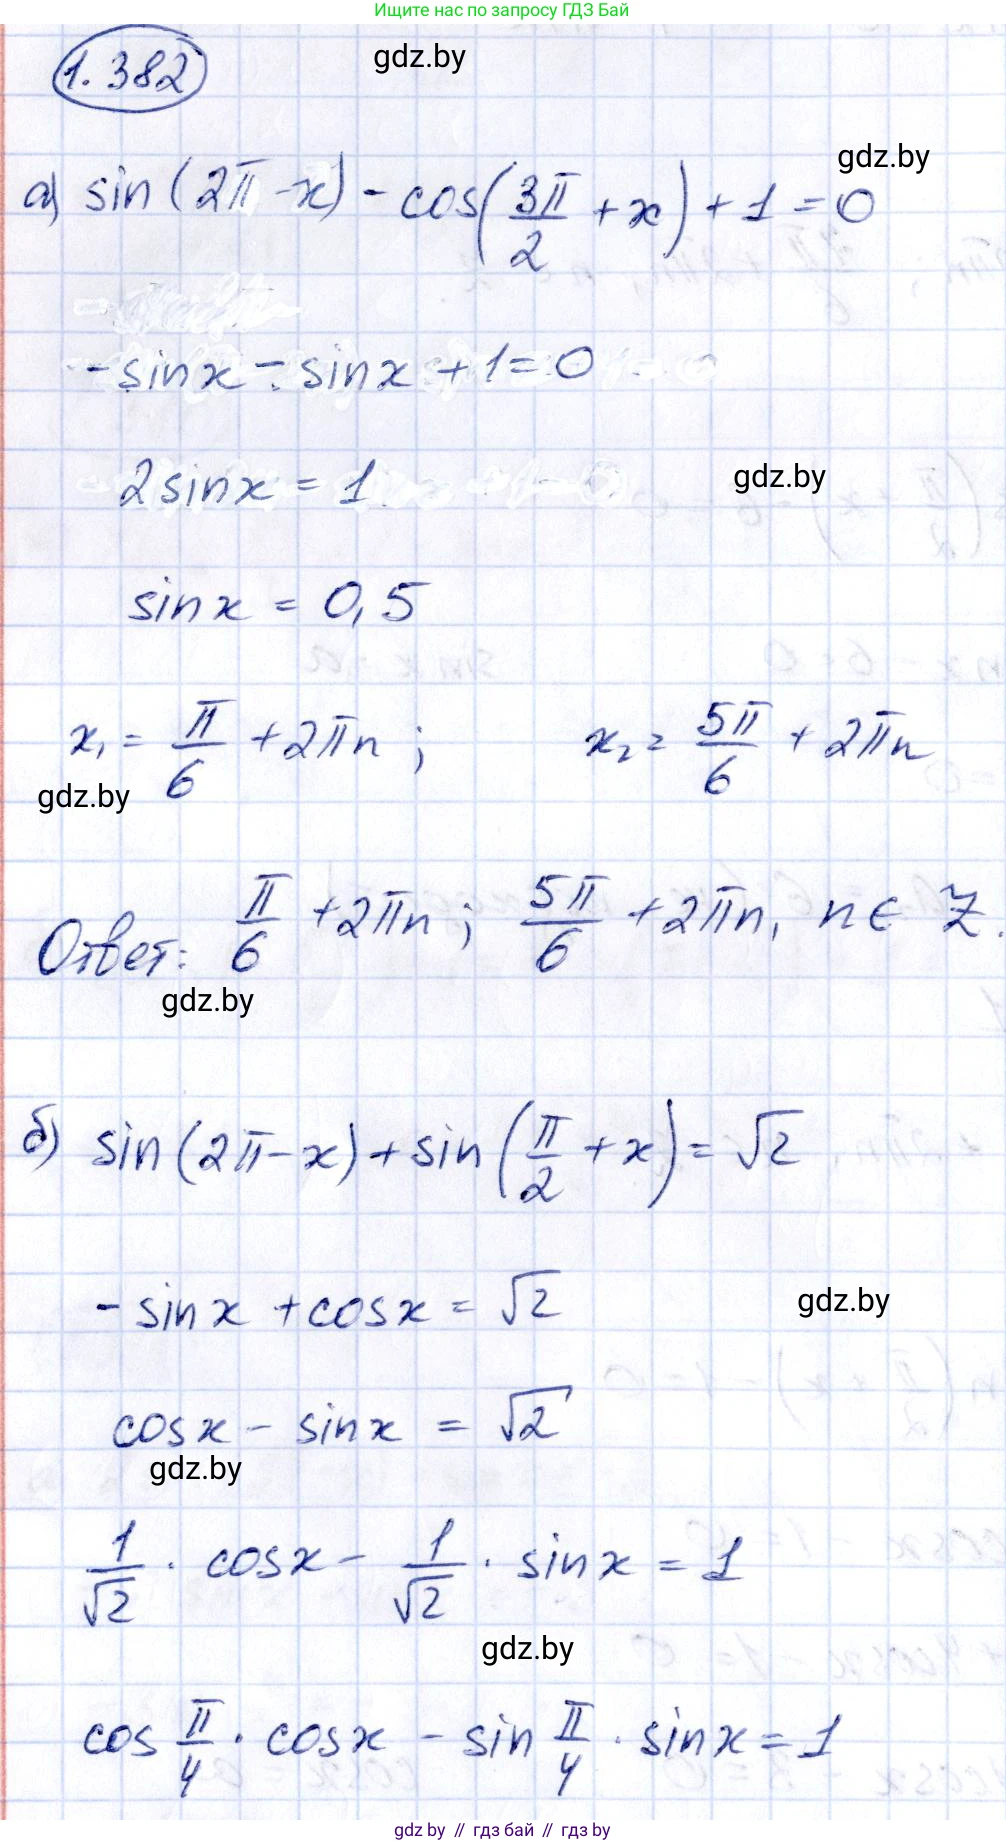 Ищите нас по запросу ГДЗ Бай
gdz.by
1.382
gdz.by
а) sin(2π - x) - cos(3π/2 + x) + 1 = 0
- sinx - sinx + 1 = 0
2sinx = 1
gdz.by
sinx = 0,5
x₁ = π/6 + 2πn ; x₂ = 5π/6 + 2πn
gdz.by
Ответ: π/6 + 2πn ; 5π/6 + 2πn, n ∈ Z.
gdz.by
б) sin(2π - x) + sin(π/2 + x) = √2
- sinx + cosx = √2
gdz.by
cosx - sinx = √2
gdz.by
1/√2 · cosx - 1/√2 · sinx = 1
gdz.by
cos π/4 · cosx - sin π/4 · sinx = 1
gdz by // гдз бай // гдз by